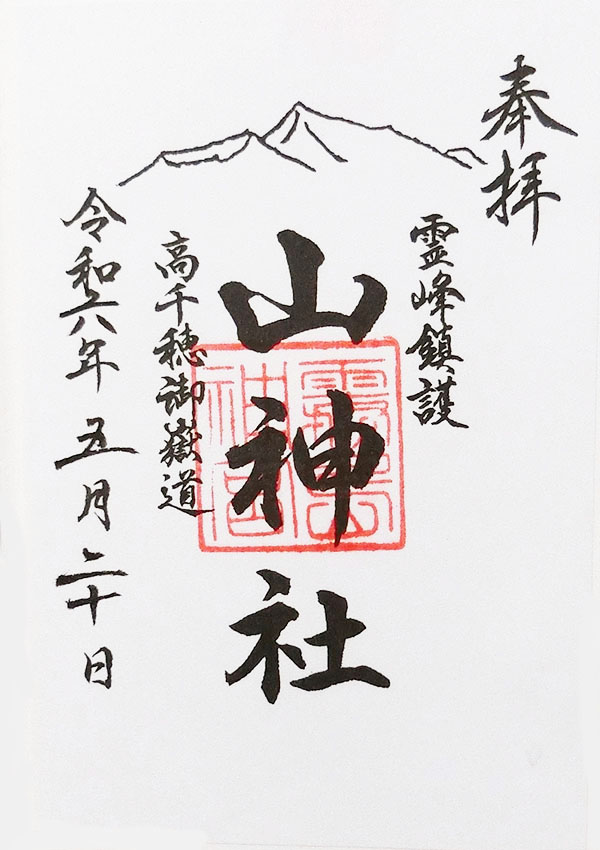 奉拝
霊峰鎮護
山神社
高千穂御嶽道
令和六年五月二十日